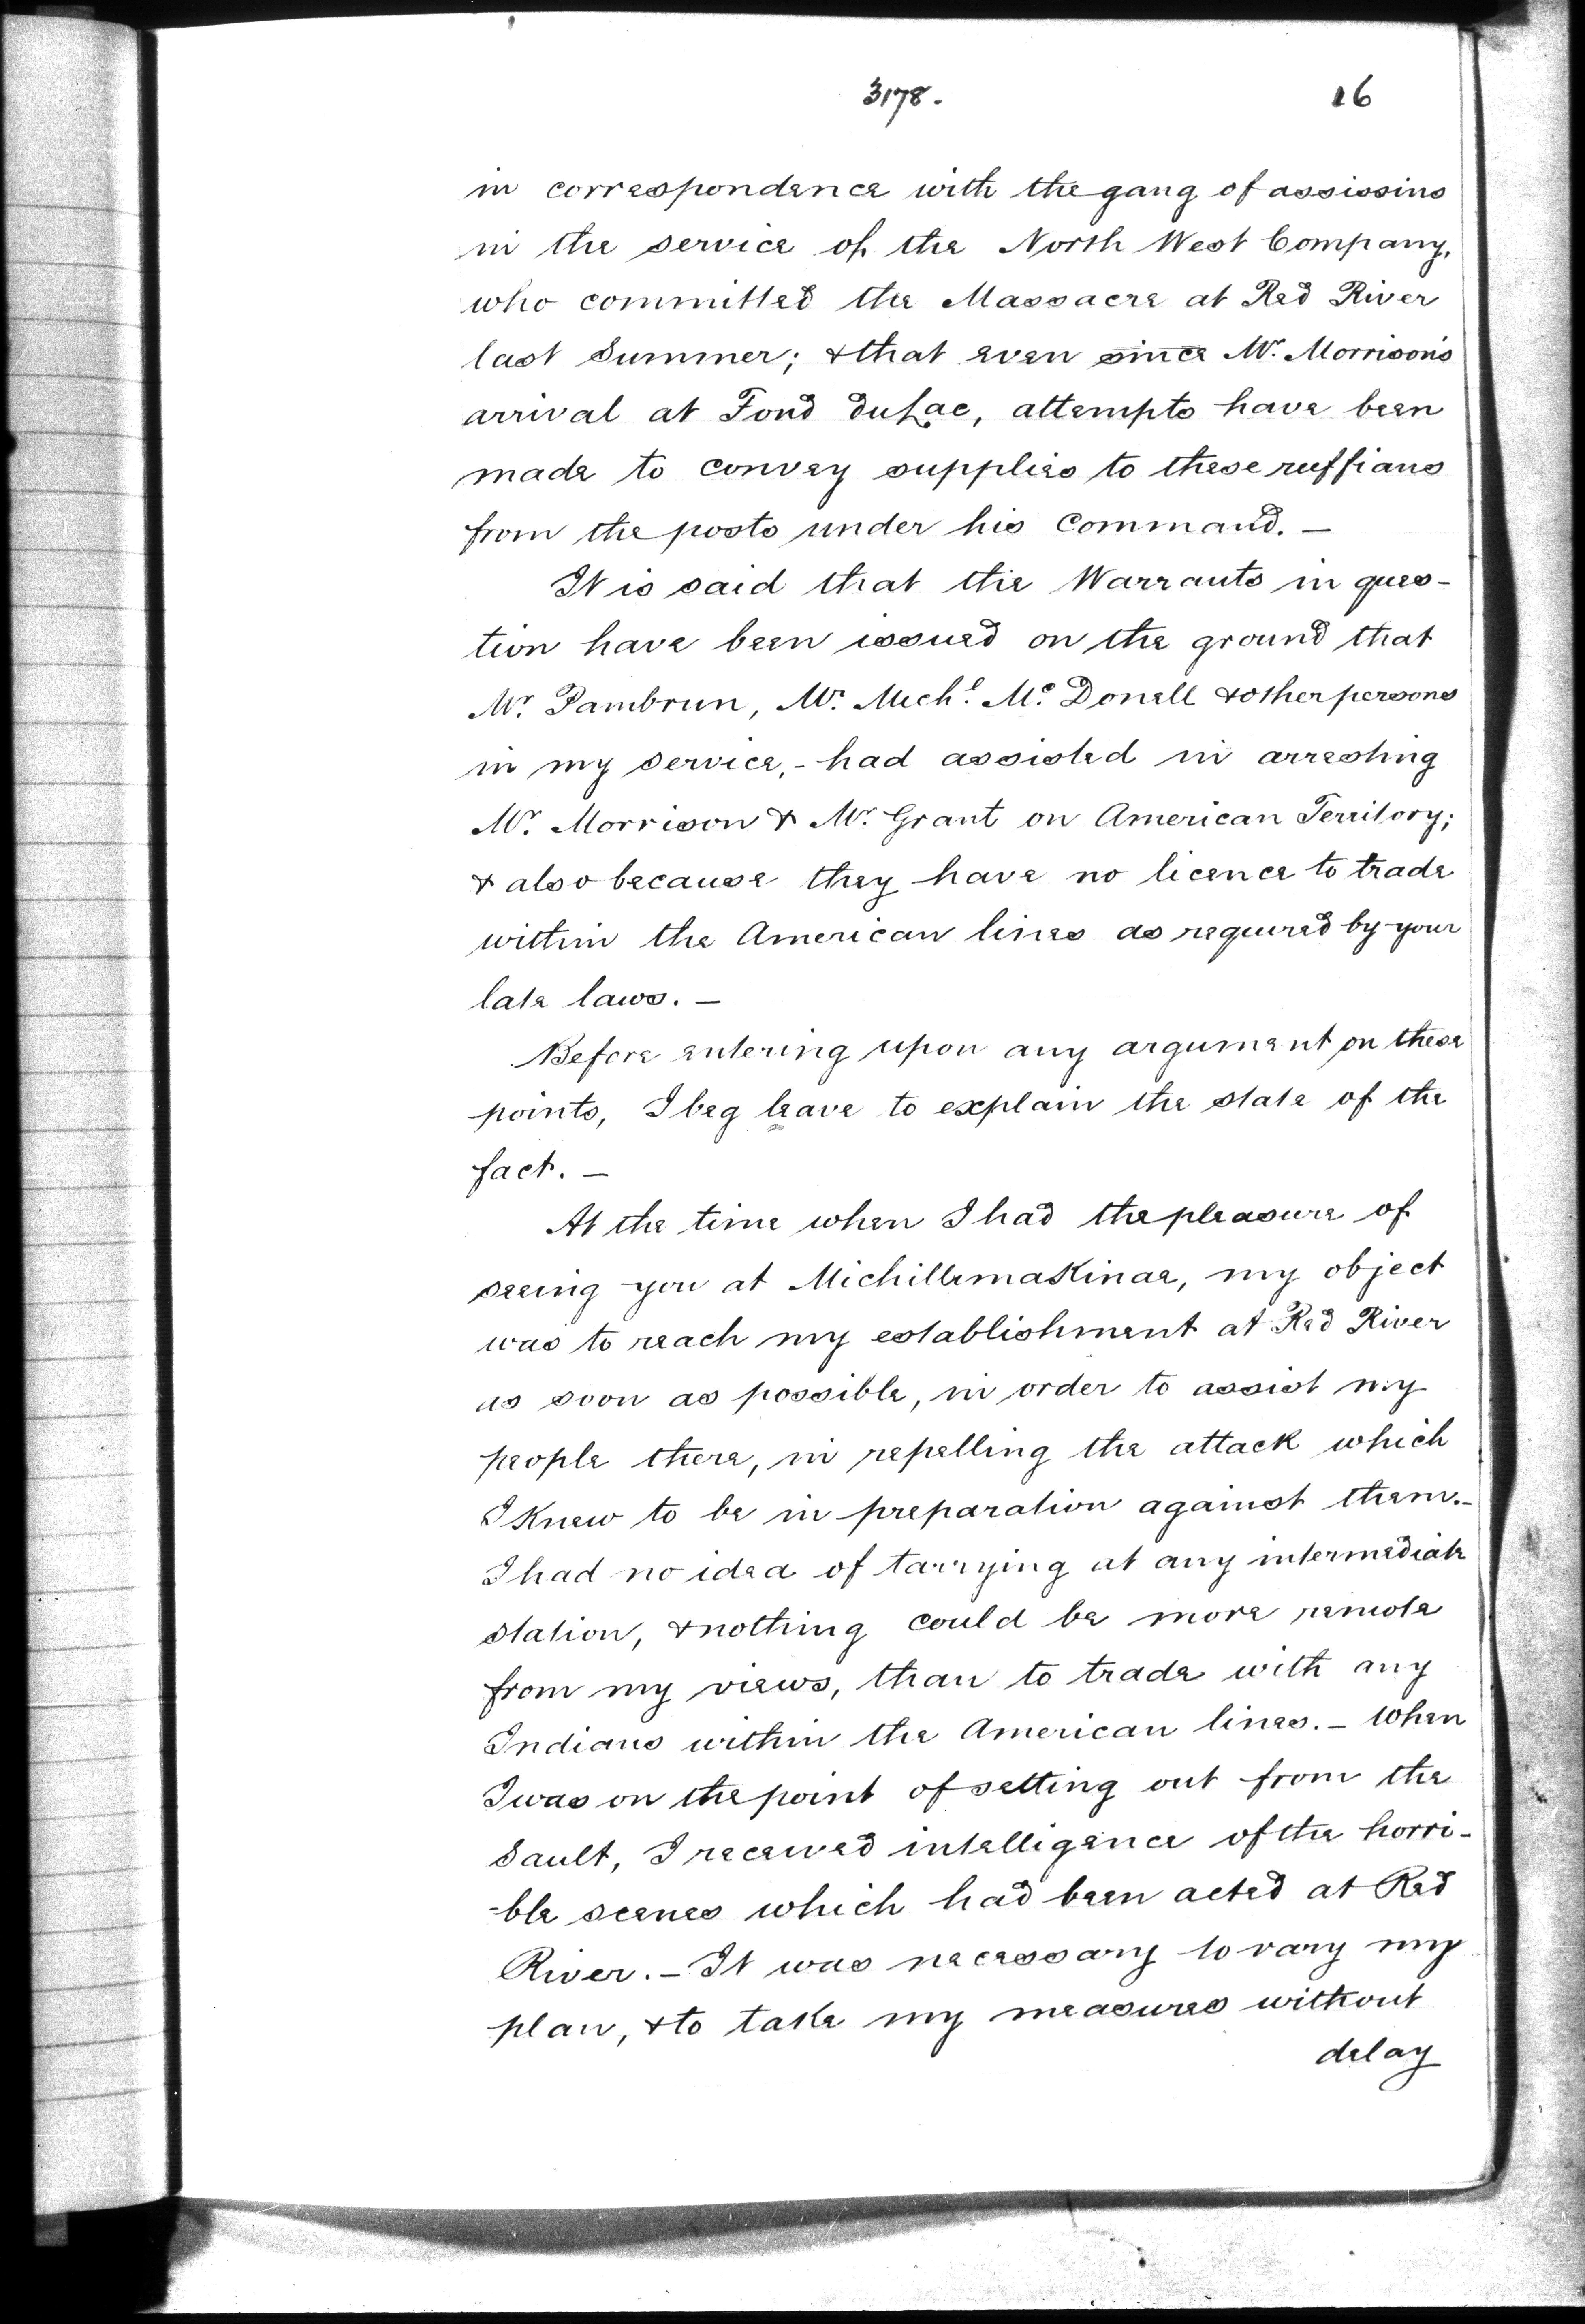 3178.
16
in correspondence with the gang of assissins
in the service of the North West Company,
who committed the Massacre at Red River
last Summer; & that even since Mr. Morrison's
arrival at Fond du Lac, attempts have been
made to convey supplies to these ruffians
from the posts under his Command. —
It is said that the Warrants in ques-
tion have been issued on the ground that
Mr. Pambrun, Mr. Michl. Mc. Donell & other persons
in my service, - had assisted in arresting
Mr. Morrison & Mr. Grant on American Territory;
& also because they have no licence to trade
within the American lines as required by your
late laws. —
Before entering upon any argument on these
points, I beg leave to explain the state of the
fact. —
At the time when I had the pleasure of
seeing you at Michillimakinac, my object
was to reach my establishment at Red River
as soon as possible, in order to assist my
people there, in repelling the attack which
I Knew to be in preparation against them. -
I had no idea of tarrying at any intermediate
station, & nothing could be more remote
from my views, than to trade with any
Indians within the American lines. - When
I was on the point of setting out from the
Sault, I received intelligence of the horri-
-ble scenes which had been acted at Red
River. - It was necessary to vary my
plan, & to take my measures without
delay